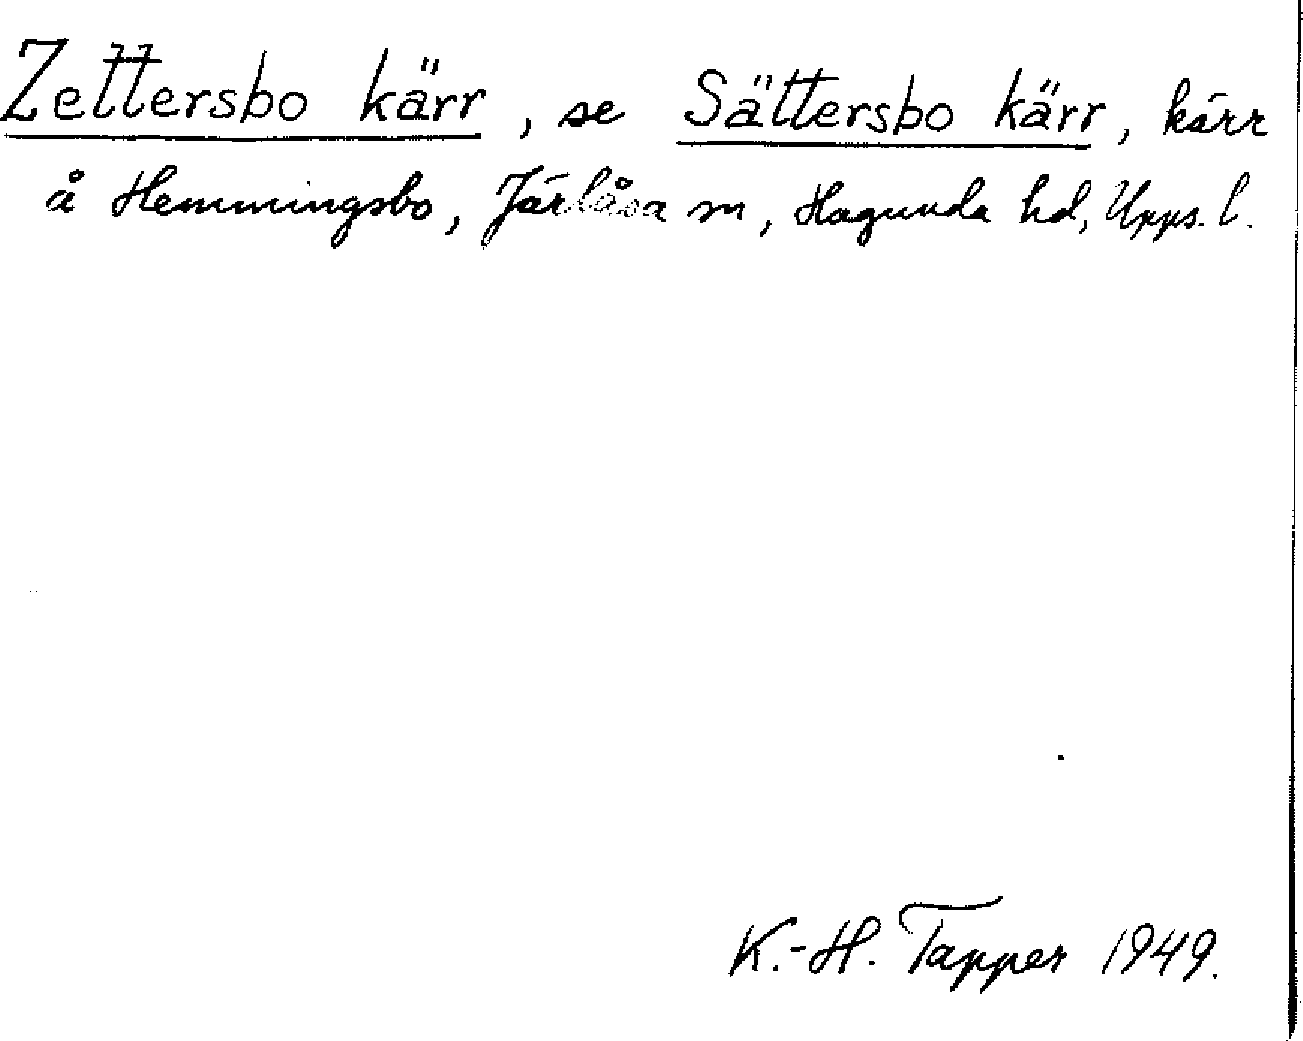 Zettersbo kärr, se Sättersbo kärr, kärr
å Hemmingsbo, Järlåsa sn, Hagunda hd, Upps. l.
K.-H. Tapper 1949.